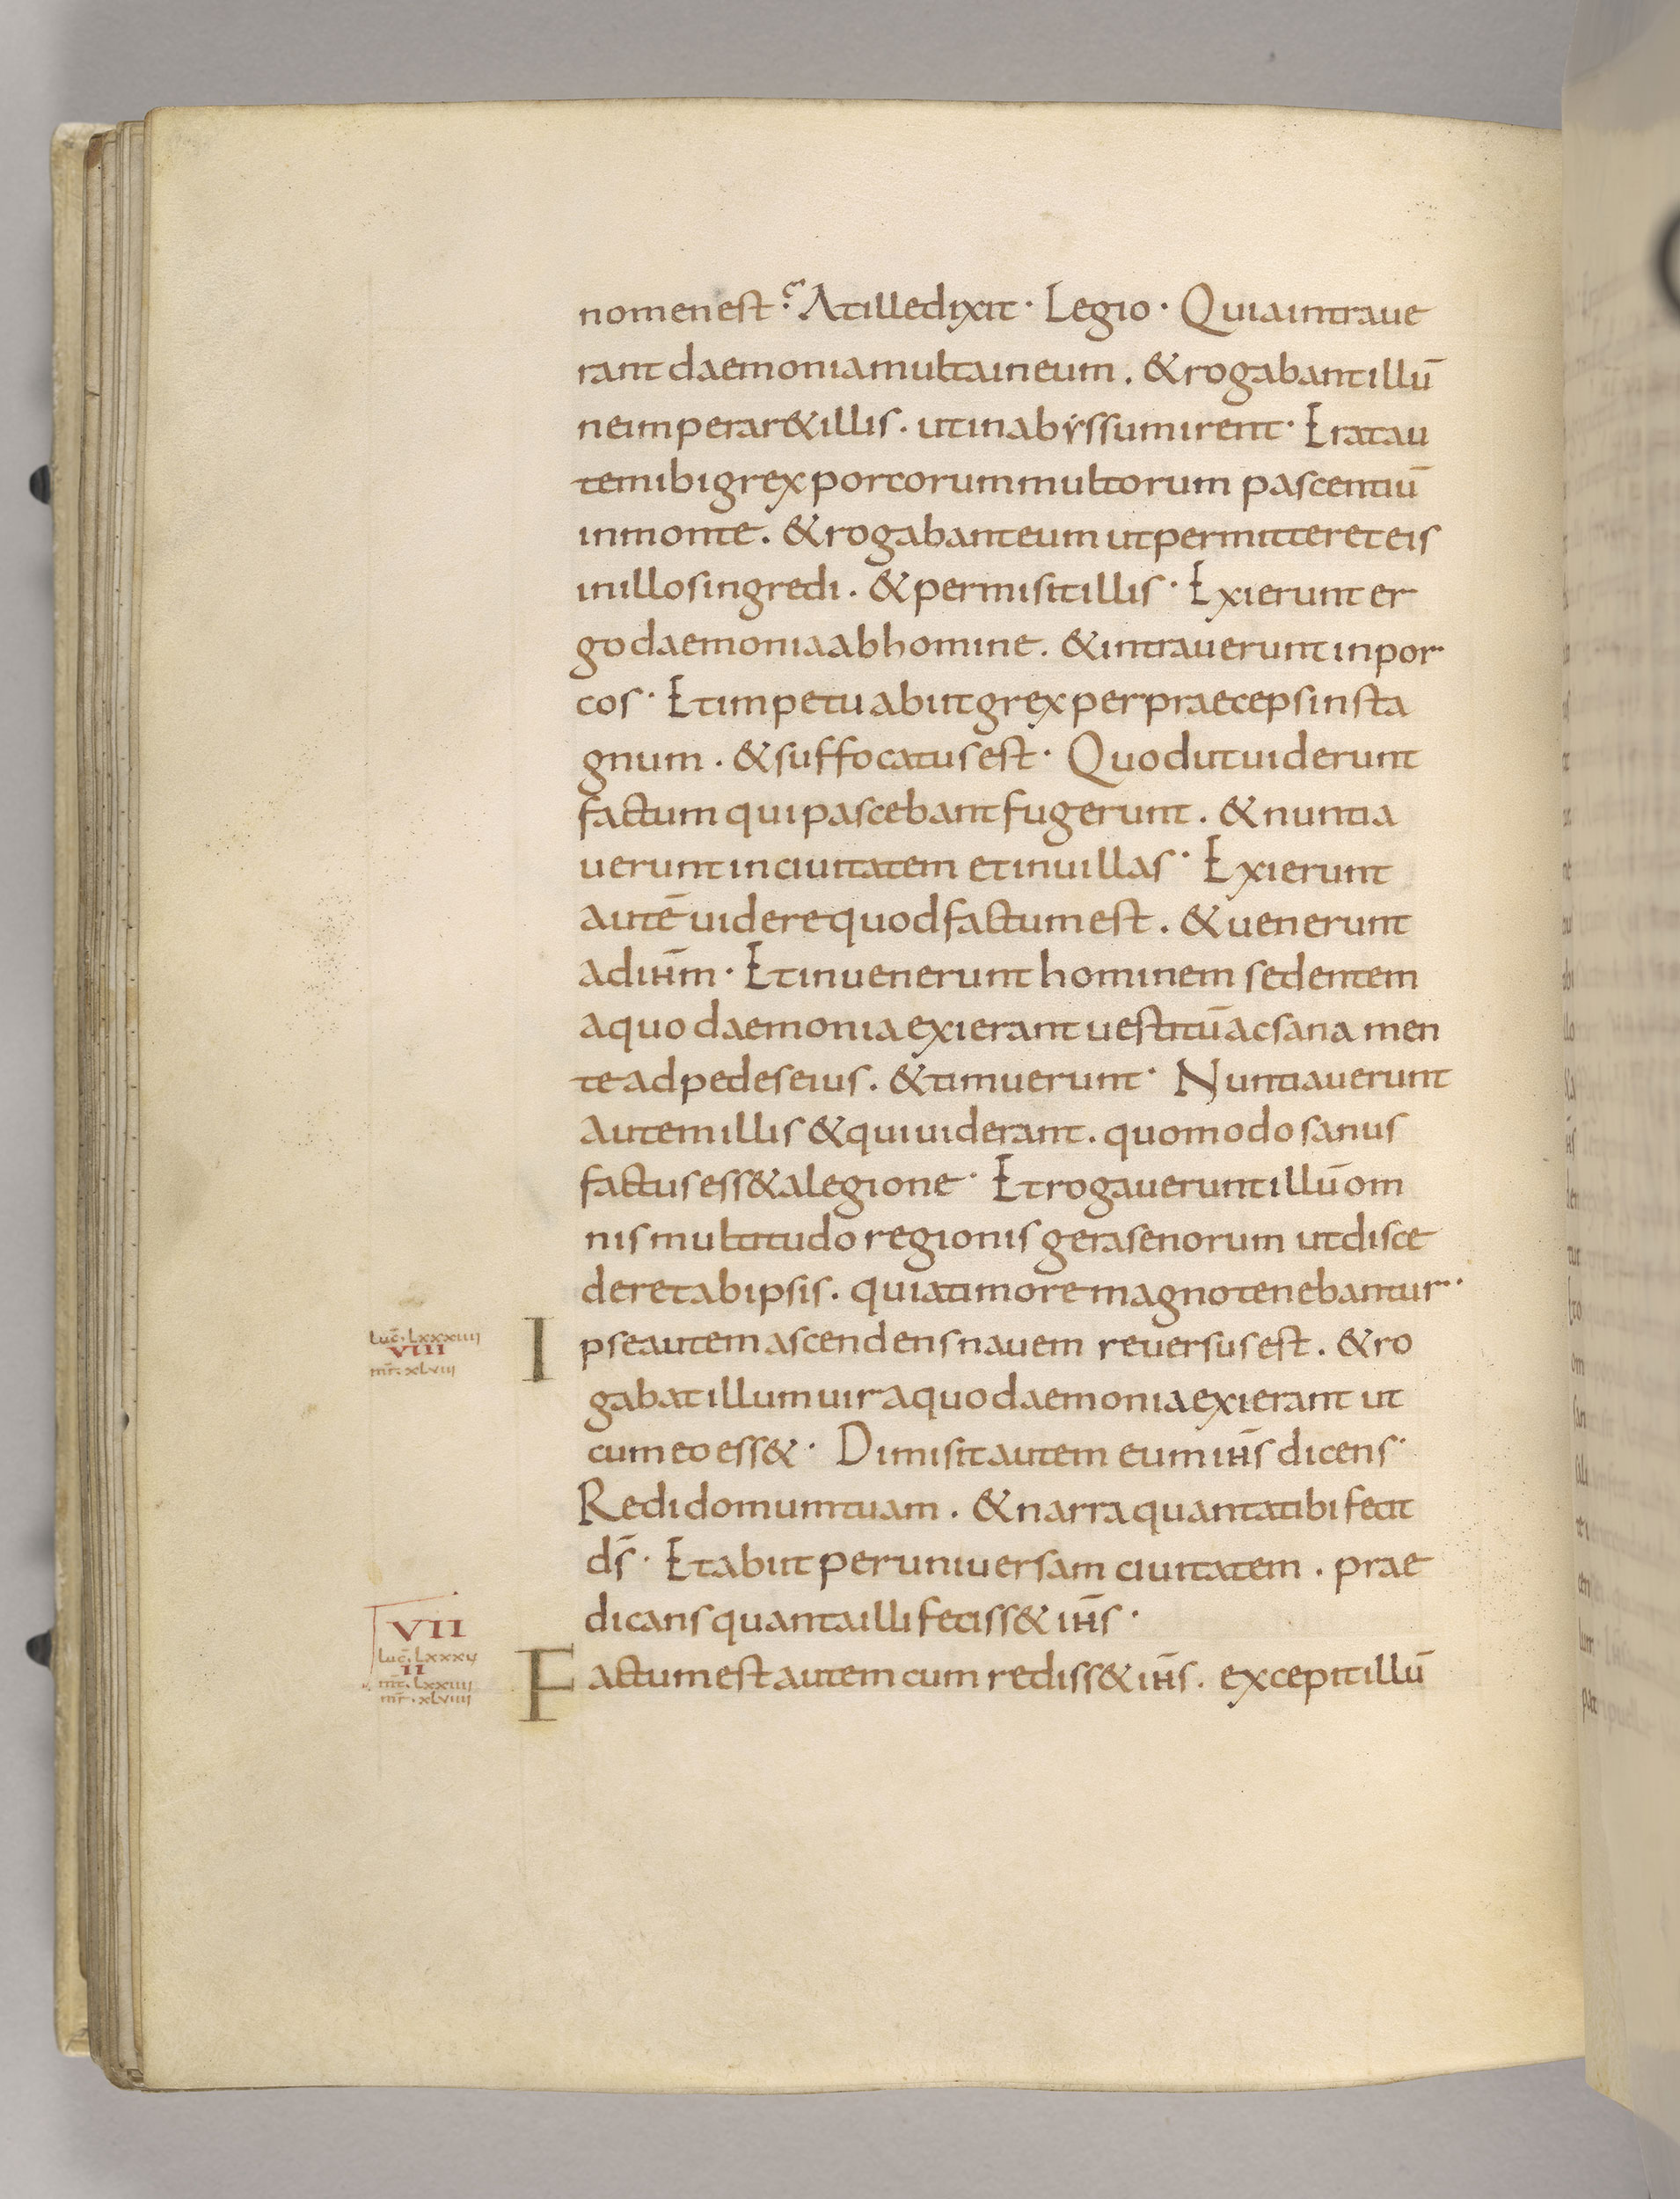 nomenest? Atilledixit· Legio· Quiaintraue
rant daemoniamultaineum. &rogabantillū
neimperar&illis. utinabẏssumirent· Eratau
temibigrex porcorummultorum pascentiū
inmonte. &rogabanteum utpermittereteis
inillosingredi. &permisitillis· Exierunt er
go daemoniaabhomine. &intrauerunt inpor
cos· Etimpetu abiitgrexperpraecepsinsta
gnum. &suffocatusest· Quodutuiderunt
factum quipascebant fugerunt. &nuntia
uerunt inciuitatem etinuillas· Exierunt
autē uiderequodfactumest. &uenerunt
adihm̄· Etinuenerunt hominem sedentem
aquo daemoniaexierant uestitūacsana men
te adpedeseius. &timuerunt· Nuntiauerunt
autemillis &quiuiderant. quomodo sanus
factusess&alegione· Etrogaueruntillūom
nismultitudo regionis gerasenorum utdisce
deretabipsis. quiatimoremagnotenebantur··
Luc̄. Lxxxiiii
VIII
mr̄. xLviii
Ipseautem ascendensnauem reuersusest. &ro
gabatillumuir aquodaemoniaexierant ut
cumeoess&· Dimisitautem eumihs̄ dicens·
Redidomumtuam. &narraquantatibifecit
ds̄· Etabiit peruniuersam ciuitatem. prae
dicansquantaillifeciss& ihs̄·
VII
Luc̄. Lxxxv
II
mt̄. Lxxiiii
mr̄. xLviiii
Factumestautemcum rediss& ihs̄. excepitillū